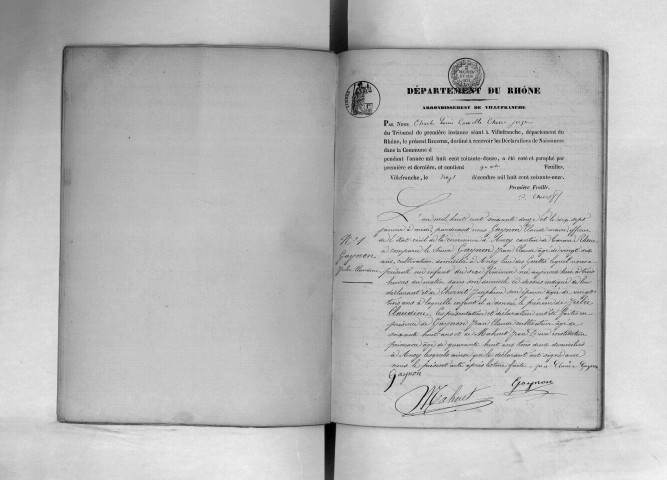 DÉPARTEMENT DU RHÔNE
ARRONDISSEMENT DE VILLEFRANCHE
PAR NOUS Charles Louis Camille juge
du Tribunal de première instance séant à Villefranche, département du
Rhône, le présent REGISTRE, destiné à recevoir les Déclarations de Naissances
dans la Commune d
pendant l'année mil huit cent soixante-douze, a été coté et paraphé par
première et dernière, et contient quatre Feuilles.
Villefranche, le vingt décembre mil huit cent soixante-onze.
Première Feuille.
L'an mil huit cent soixante douze et le dix sept
janvier à midi, pardevant nous Gaynon Claude maire officier
de l'état civil de la commune d'Ancy canton de
a comparu le sieur Gaynon Jean Claude âgé de vingt
ans, cultivateur domicilié à Ancy lieu des lequel nous a
présenté un enfant du sexe féminin né aujourd'hui à trois
heures du matin dans son domicile ci dessus indiqué de lui
déclarant et de Joséphine son épouse âgée de vingt
trois ans à laquelle enfant il a donné le prénom de
Claudine, les présentation et déclaration ont été faites en
présence de Gaynon Jean Claude cultivateur âgé de
soixante huit ans et de Mahuet Jean Louis instituteur
primaire âgé de quarante huit ans tous deux domiciliés
à Ancy lesquels ainsi que le déclarant ont signé avec
nous le présent acte après lecture faite. Gaynon
N° 1
Gaynon
Claudine
Gaynon
Mahuet
Gaynon